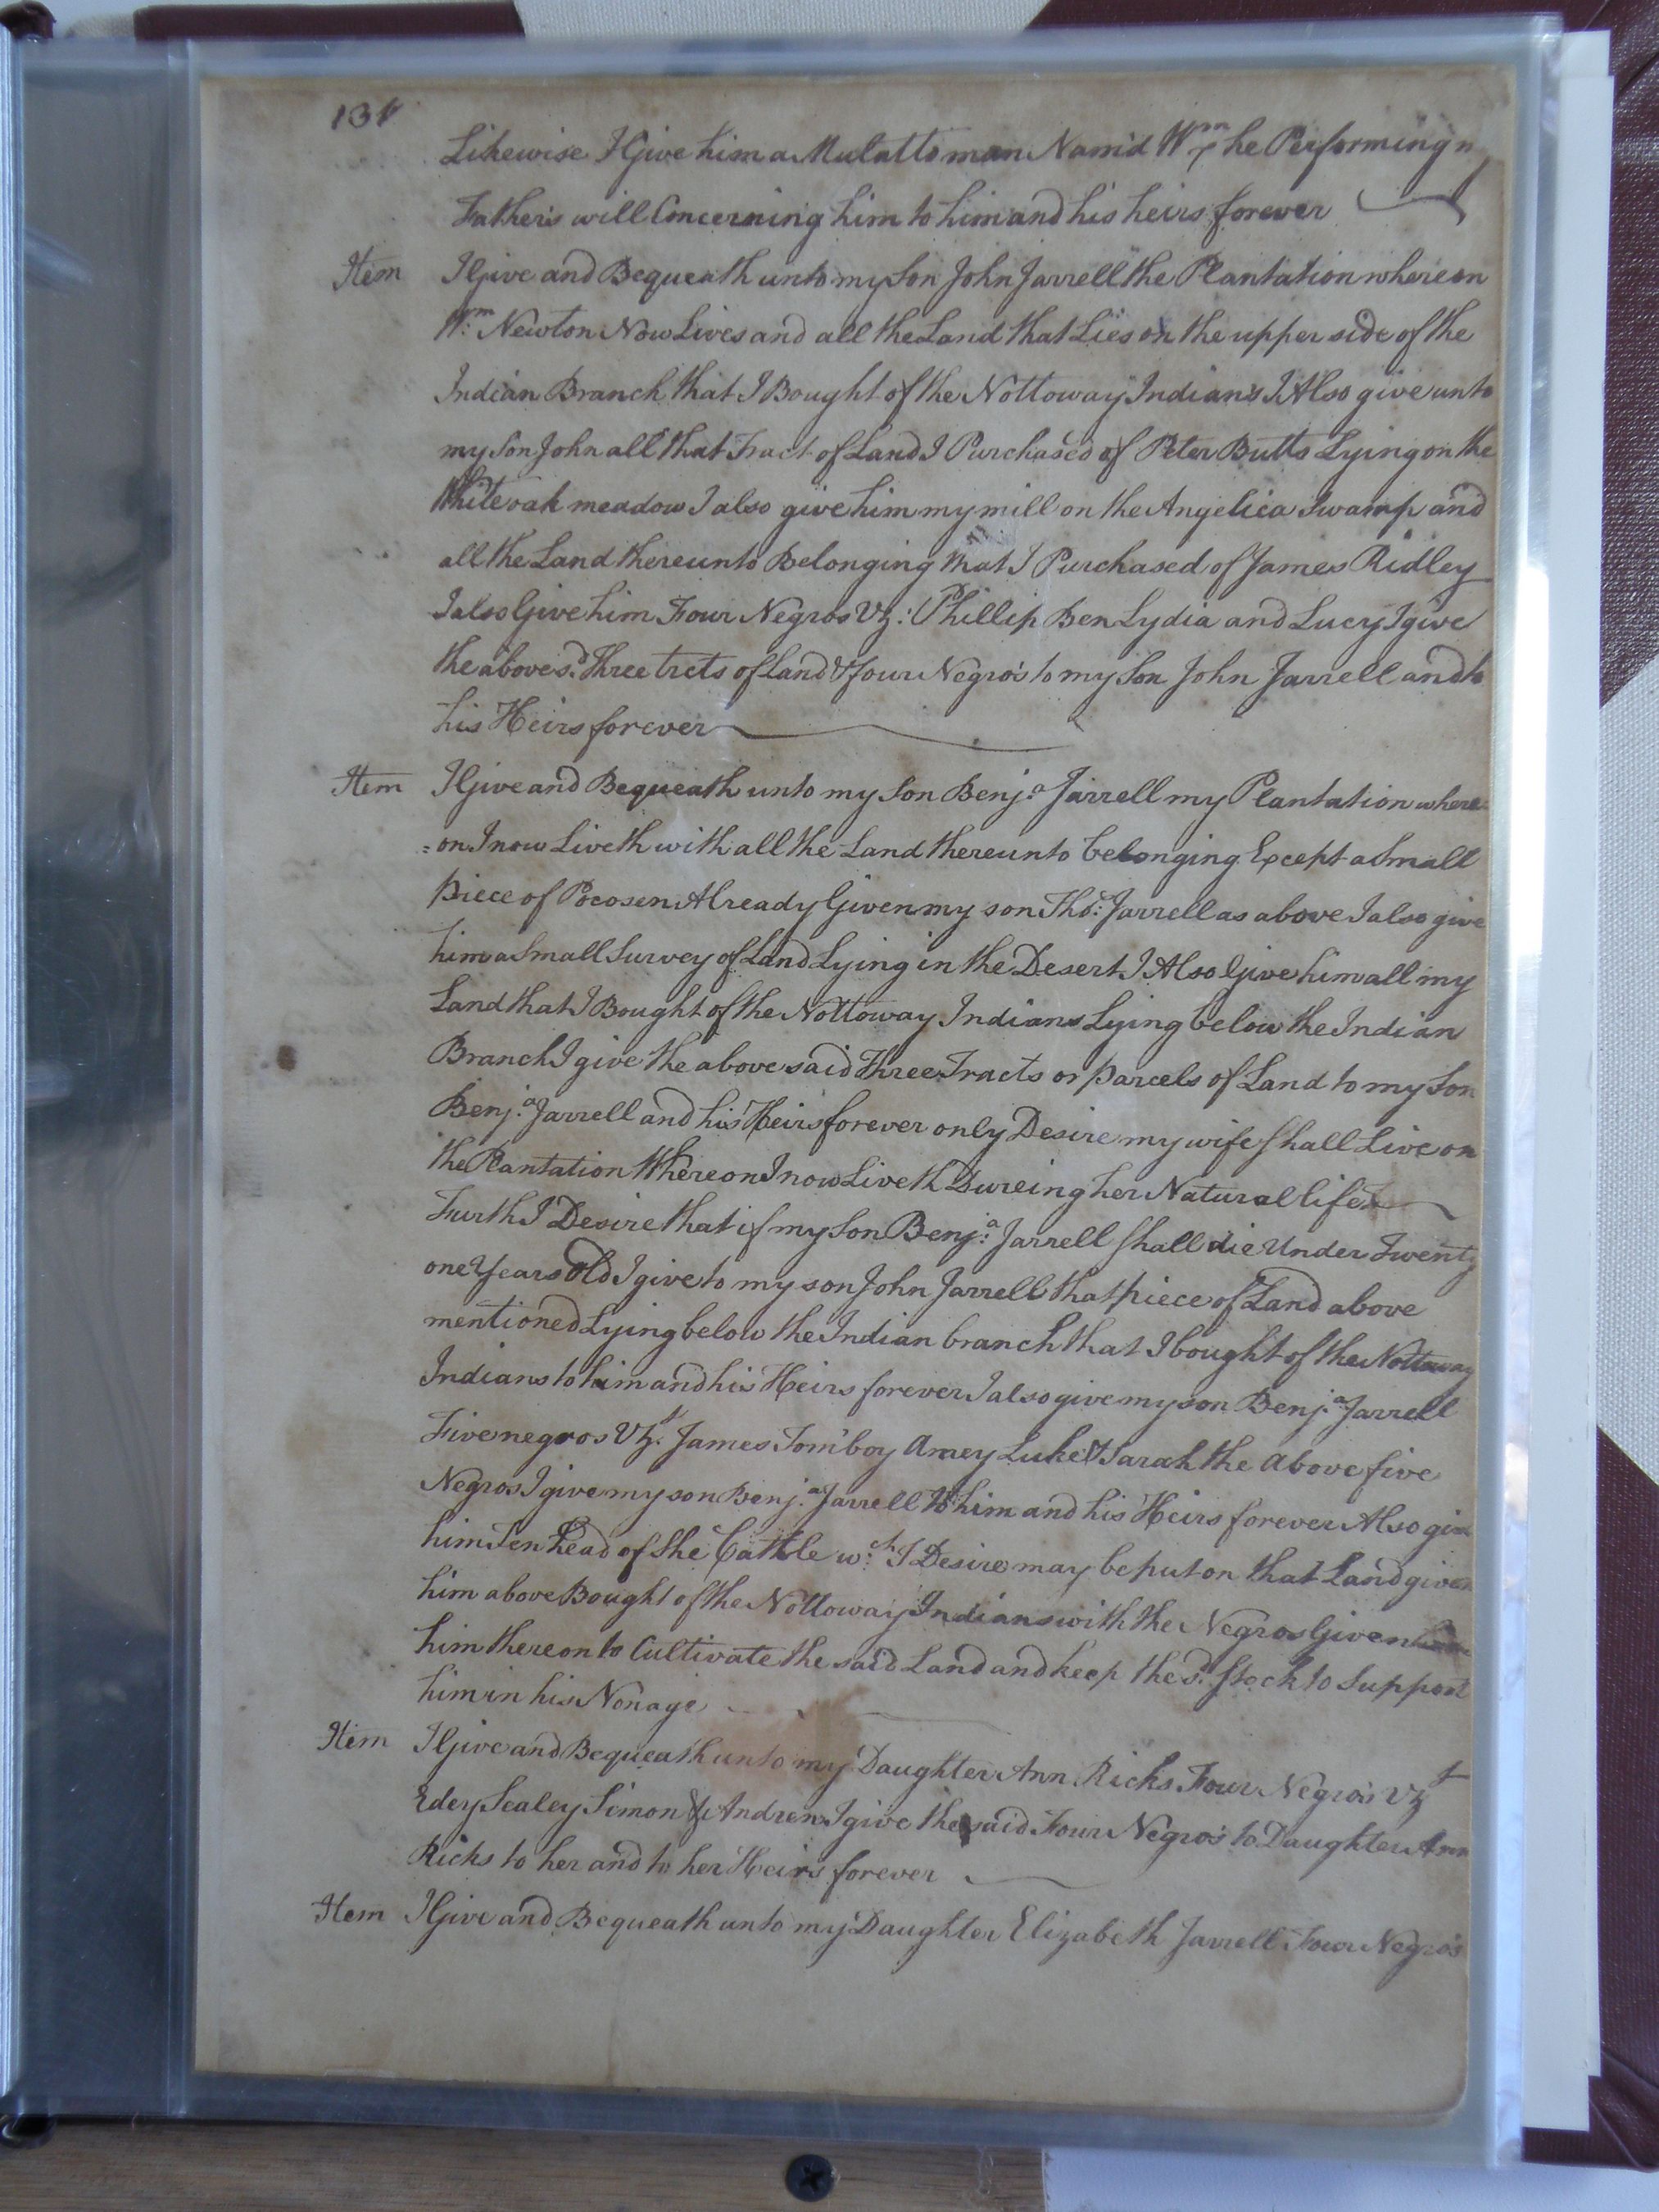 131
Likewise I Give him a Mulatto man Nam'd Wm he Performing
Father's will Concerning him to him and his heirs forever
Item I Give and Bequeath unto my Son John Jarrell the Plantation whereon
Wm. Newton Now Lives and all the Land that Lies on the upper side of the
Indian Branch that I Bought of the Nottoway Indians I Also give unto
my Son John all that Tract of Land I Purchased of Peter Butts Lying on the
White oak meadow I also give him my mill on the Angelica Swamp and
all the Land thereunto Belonging that I Purchased of James Ridley
I also Give him Four Negros Vz: Phillip Ben Lydia and Lucy I give
the above sd. three trcts of Land & four Negro's to my Son John Jarrell and to
his Heirs forever
Item I Give and Bequeath unto my Son Benja. Jarrell my Plantation where=
=on I now Liveth with all the Land thereunto belonging Except a Small
Piece of Pocosen Already Given my son Thos: Jarrell as above I also give
him a Small Survey of Land Lying in the Desert I Also Give him all my
Land that I Bought of the Nottoway Indians Lying below the Indian
Branch I give the above said Three Tracts or parcels of Land to my Son
Benja. Jarrell and his Heirs forever only Desire my wife shall Live on
the Plantation Whereon I now Liveth Dureing her Natural life
Furth I Desire that if my Son Benja: Jarrell shall die Under Twenty
one Years old I give to my son John Jarrell that piece of Land above
mentioned Lying below the Indian branch that I bought of the Nottoway
Indians to him and his Heirs forever I also give my son Benja. Jarrell
Five negros Vzt. James Tom boy Amey Luke & Sarah the above five
Negros I give my son Benja. Jarrell to him and his Heirs forever Also give
him Ten head of the Cattle wch. I Desire may be put on that Land given
him above Bought of the Nottoway Indians with the Negros Given
him thereon to Cultivate the said Land and keep the sd. Stock to Support
him in his Nonage
Item I Give and Bequeath unto my Daughter Ann Ricks Four Negro's Vzt
Edey Sealey Simon & Andrew I give the said Four Negro's to Daughter Ann
Ricks to her and to her Heirs forever
Item I Give and Bequeath unto my Daughter Elizabeth Jarrell Four Negro's